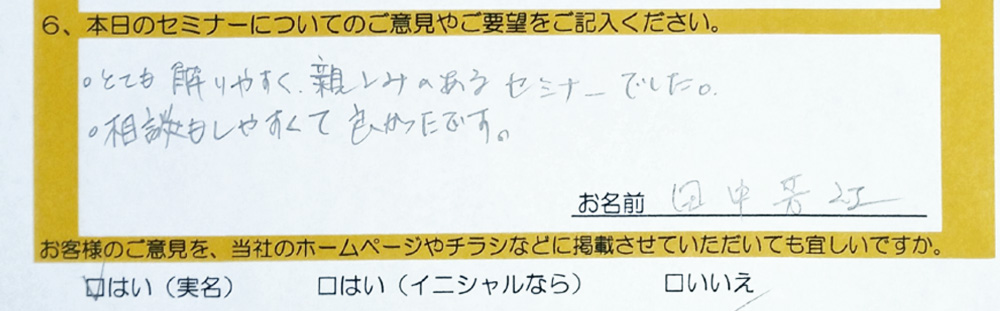 6、本日のセミナーについてのご意見やご要望をご記入ください。
○とても解りやすく、親しみのあるセミナーでした。
○相談もしやすくて良かったです。
お名前 田中
お客様のご意見を、当社のホームページやチラシなどに掲載させていただいても宜しいですか。
☑はい（実名） □はい（イニシャルなら） □いいえ